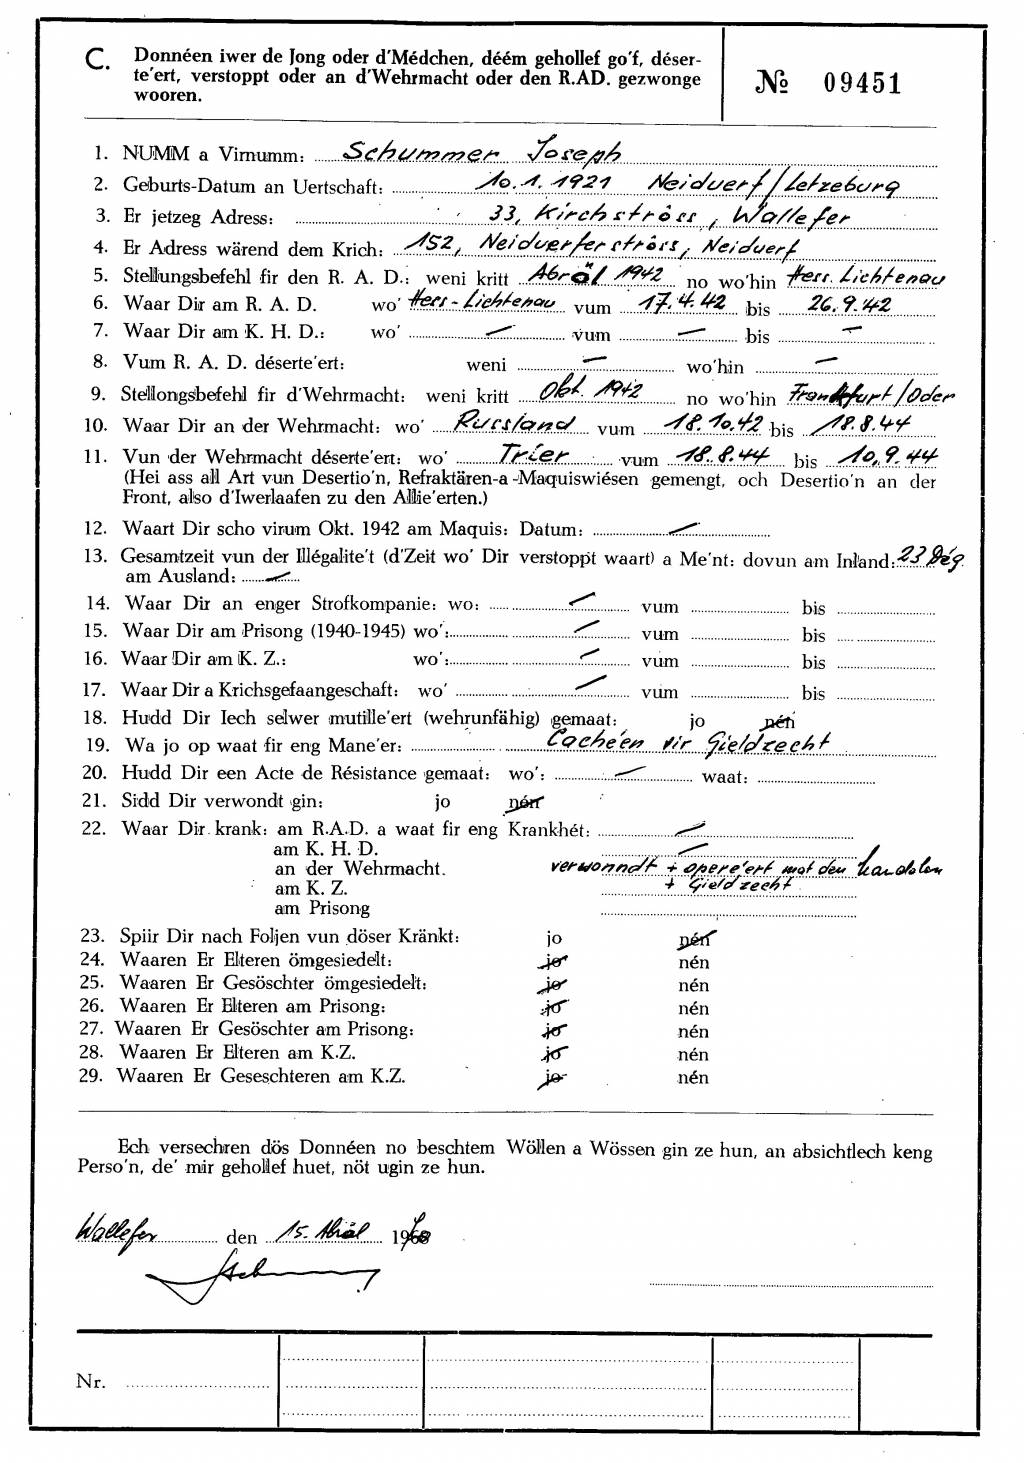 C. Donnéen iwer de Jong oder d'Médchen, déém gehollef go'f, déser-
te'ert, verstoppt oder an d'Wehrmacht oder den R.AD. gezwonge
wooren.
№ 09451
1. NUMM a Virnumm: Schummer Joseph
2. Geburts-Datum an Uertschaft: 10.1.1921 Neiduerf/Letzeburg
3. Er jetzeg Adress: 33, Kirchstrôss, Wallefer
4. Er Adress wärend dem Krich: 152, Neiduerferstrôss, Neiduerf
5. Stellungsbefehl fir den R. A. D.: weni kritt Abröl 1942 no wo'hin Hess. Lichtenau
6. Waar Dir am R. A. D. wo' Hess-Lichtenau vum 17.4.42 bis 26.9.42
7. Waar Dir am K. H. D.: wo' — vum — bis —
8. Vum R. A. D. déserte'ert: weni — wo'hin —
9. Stellongsbefehl fir d'Wehrmacht: weni kritt Okt. 1942 no wo'hin Frankfurt/Oder
10. Waar Dir an der Wehrmacht: wo' Russland vum 18.10.42 bis 18.8.44
11. Vun der Wehrmacht déserte'ert: wo' Trier vum 18.8.44 bis 10.9.44
(Hei ass all Art vun Desertio'n, Refraktären-a-Maquiswiésen gemengt, och Desertio'n an der
Front, also d'Iwerlaafen zu den Allie'erten.)
12. Waart Dir scho virum Okt. 1942 am Maquis: Datum: —
13. Gesamtzeit vun der Illégalite't (d'Zeit wo' Dir verstoppt waart) a Me'nt: dovun am Inland: 23 Dég
am Ausland: —
14. Waar Dir an enger Strofkompanie: wo: — vum bis
15. Waar Dir am Prisong (1940-1945) wo': — vum bis
16. Waar Dir am K. Z.: wo': — vum bis
17. Waar Dir a Krichsgefaangeschaft: wo' — vum bis
18. Hudd Dir Iech selwer mutille'ert (wehrunfähig) gemaat: jo nén
19. Wa jo op waat fir eng Mane'er: Cache'en vir Gieldzecht
20. Hudd Dir een Acte de Résistance gemaat: wo': — waat:
21. Sidd Dir verwondt gin: jo nén
22. Waar Dir krank: am R.A.D. a waat fir eng Krankhét: —
am K. H. D. —
an der Wehrmacht. verwonndt + opere'ert mat den Mandelen
am K. Z. + Gieldzecht
am Prisong
23. Spiir Dir nach Foljen vun döser Kränkt: jo nén
24. Waaren Er Elteren ömgesiedelt: jo nén
25. Waaren Er Gesöschter ömgesiedelt: jo nén
26. Waaren Er Elteren am Prisong: jo nén
27. Waaren Er Gesöschter am Prisong: jo nén
28. Waaren Er Elteren am K.Z. jo nén
29. Waaren Er Geseschteren am K.Z. jo nén
Ech versechren dös Donnéen no beschtem Wöllen a Wössen gin ze hun, an absichtlech keng
Perso'n, de' mir gehollef huet, nöt ugin ze hun.
Wallefer den 15. Abröl 19
Nr.